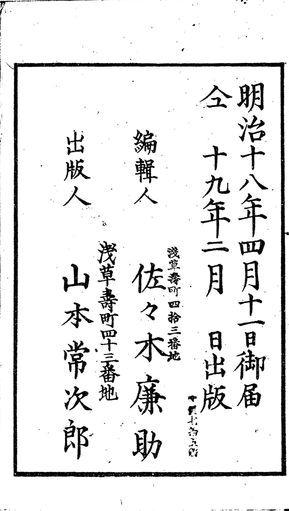 明治十八年四月十一日御届
仝 十九年二月 日出版
編輯人
淺草壽町四拾三番地
佐々木廉助
出版人
浅草壽町四十三番地
山本常次郎